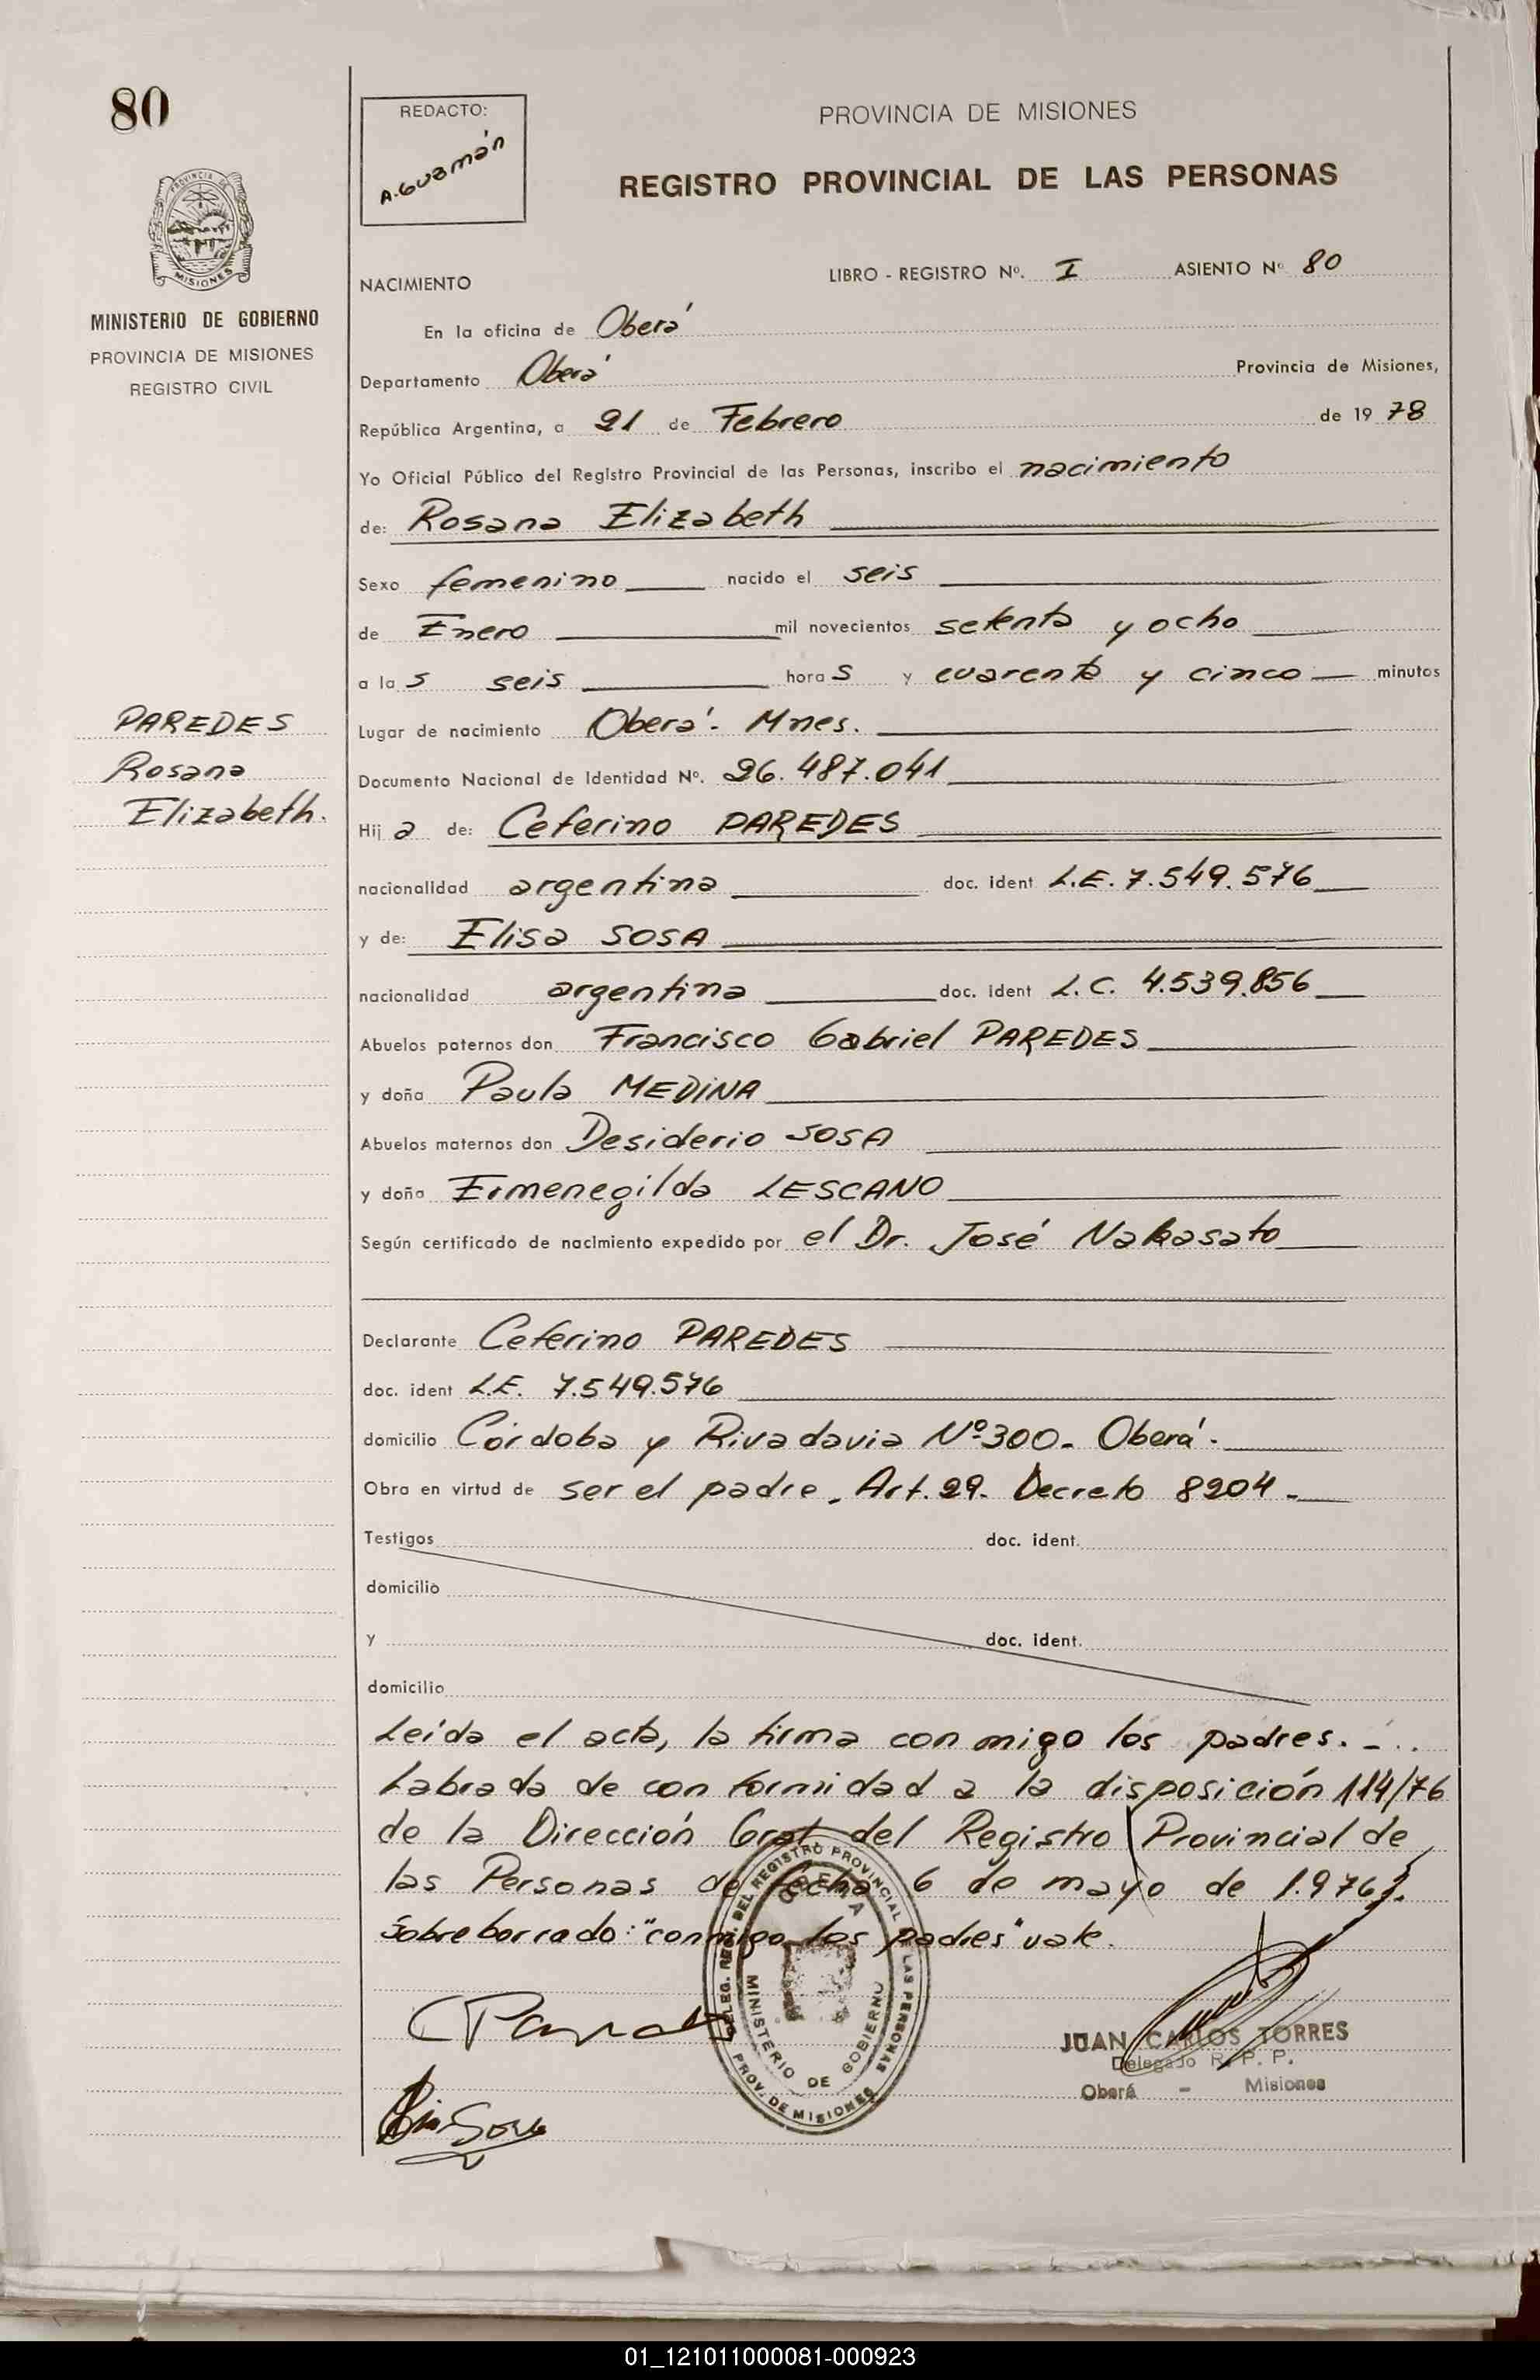 80
PROVINCIA DE
MISIONES
MINISTERIO DE GOBIERNO
PROVINCIA DE MISIONES
REGISTRO CIVIL
PAREDES
Rosana
Elizabeth.
REDACTO:
A. Guzmán
PROVINCIA DE MISIONES
REGISTRO PROVINCIAL DE LAS PERSONAS
NACIMIENTO LIBRO - REGISTRO Nº. I ASIENTO Nº 80
En la oficina de Oberá
Departamento Oberá Provincia de Misiones,
República Argentina, a 21 de Febrero de 19 78
Yo Oficial Público del Registro Provincial de las Personas, inscribo el nacimiento
de: Rosana Elizabeth
Sexo femenino nacido el seis
de Enero mil novecientos setenta y ocho
a la s seis hora s y cuarenta y cinco minutos
Lugar de nacimiento Oberá - Mnes.
Documento Nacional de Identidad Nº. 26.487.041
Hij a de: Ceferino PAREDES
nacionalidad argentina doc. ident L.E. 7.549.576
y de: Elisa SOSA
nacionalidad argentina doc. ident L.C. 4.539.856
Abuelos paternos don Francisco Gabriel PAREDES
y doña Paula MEDINA
Abuelos maternos don Desiderio SOSA
y doña Ermenegilda LESCANO
Según certificado de nacimiento expedido por el Dr. José Nakasato
Declarante Ceferino PAREDES
doc. ident L.E. 7.549.576
domicilio Córdoba y Rivadavia Nº 300 - Oberá.
Obra en virtud de ser el padre. Art. 29. Decreto 8204 -
Testigos doc. ident.
domicilio
y doc. ident.
domicilio
Leída el acta, la firma conmigo los padres. - . .
Labrada de conformidad a la disposición 114/76
de la Dirección Gral del Registro Provincial de
las Personas de fecha 6 de mayo de 1.976.
Sobreborrado: "conmigo los padres" vale.
DELEG. REG. DEL REGISTRO PROVINCIAL DE LAS PERSONAS
OBERA
MINISTERIO DE GOBIERNO
PROV. DE MISIONES
JUAN CARLOS TORRES
Delegado R. P. P.
Oberá - Misiones
Sosa
01_121011000081-000923